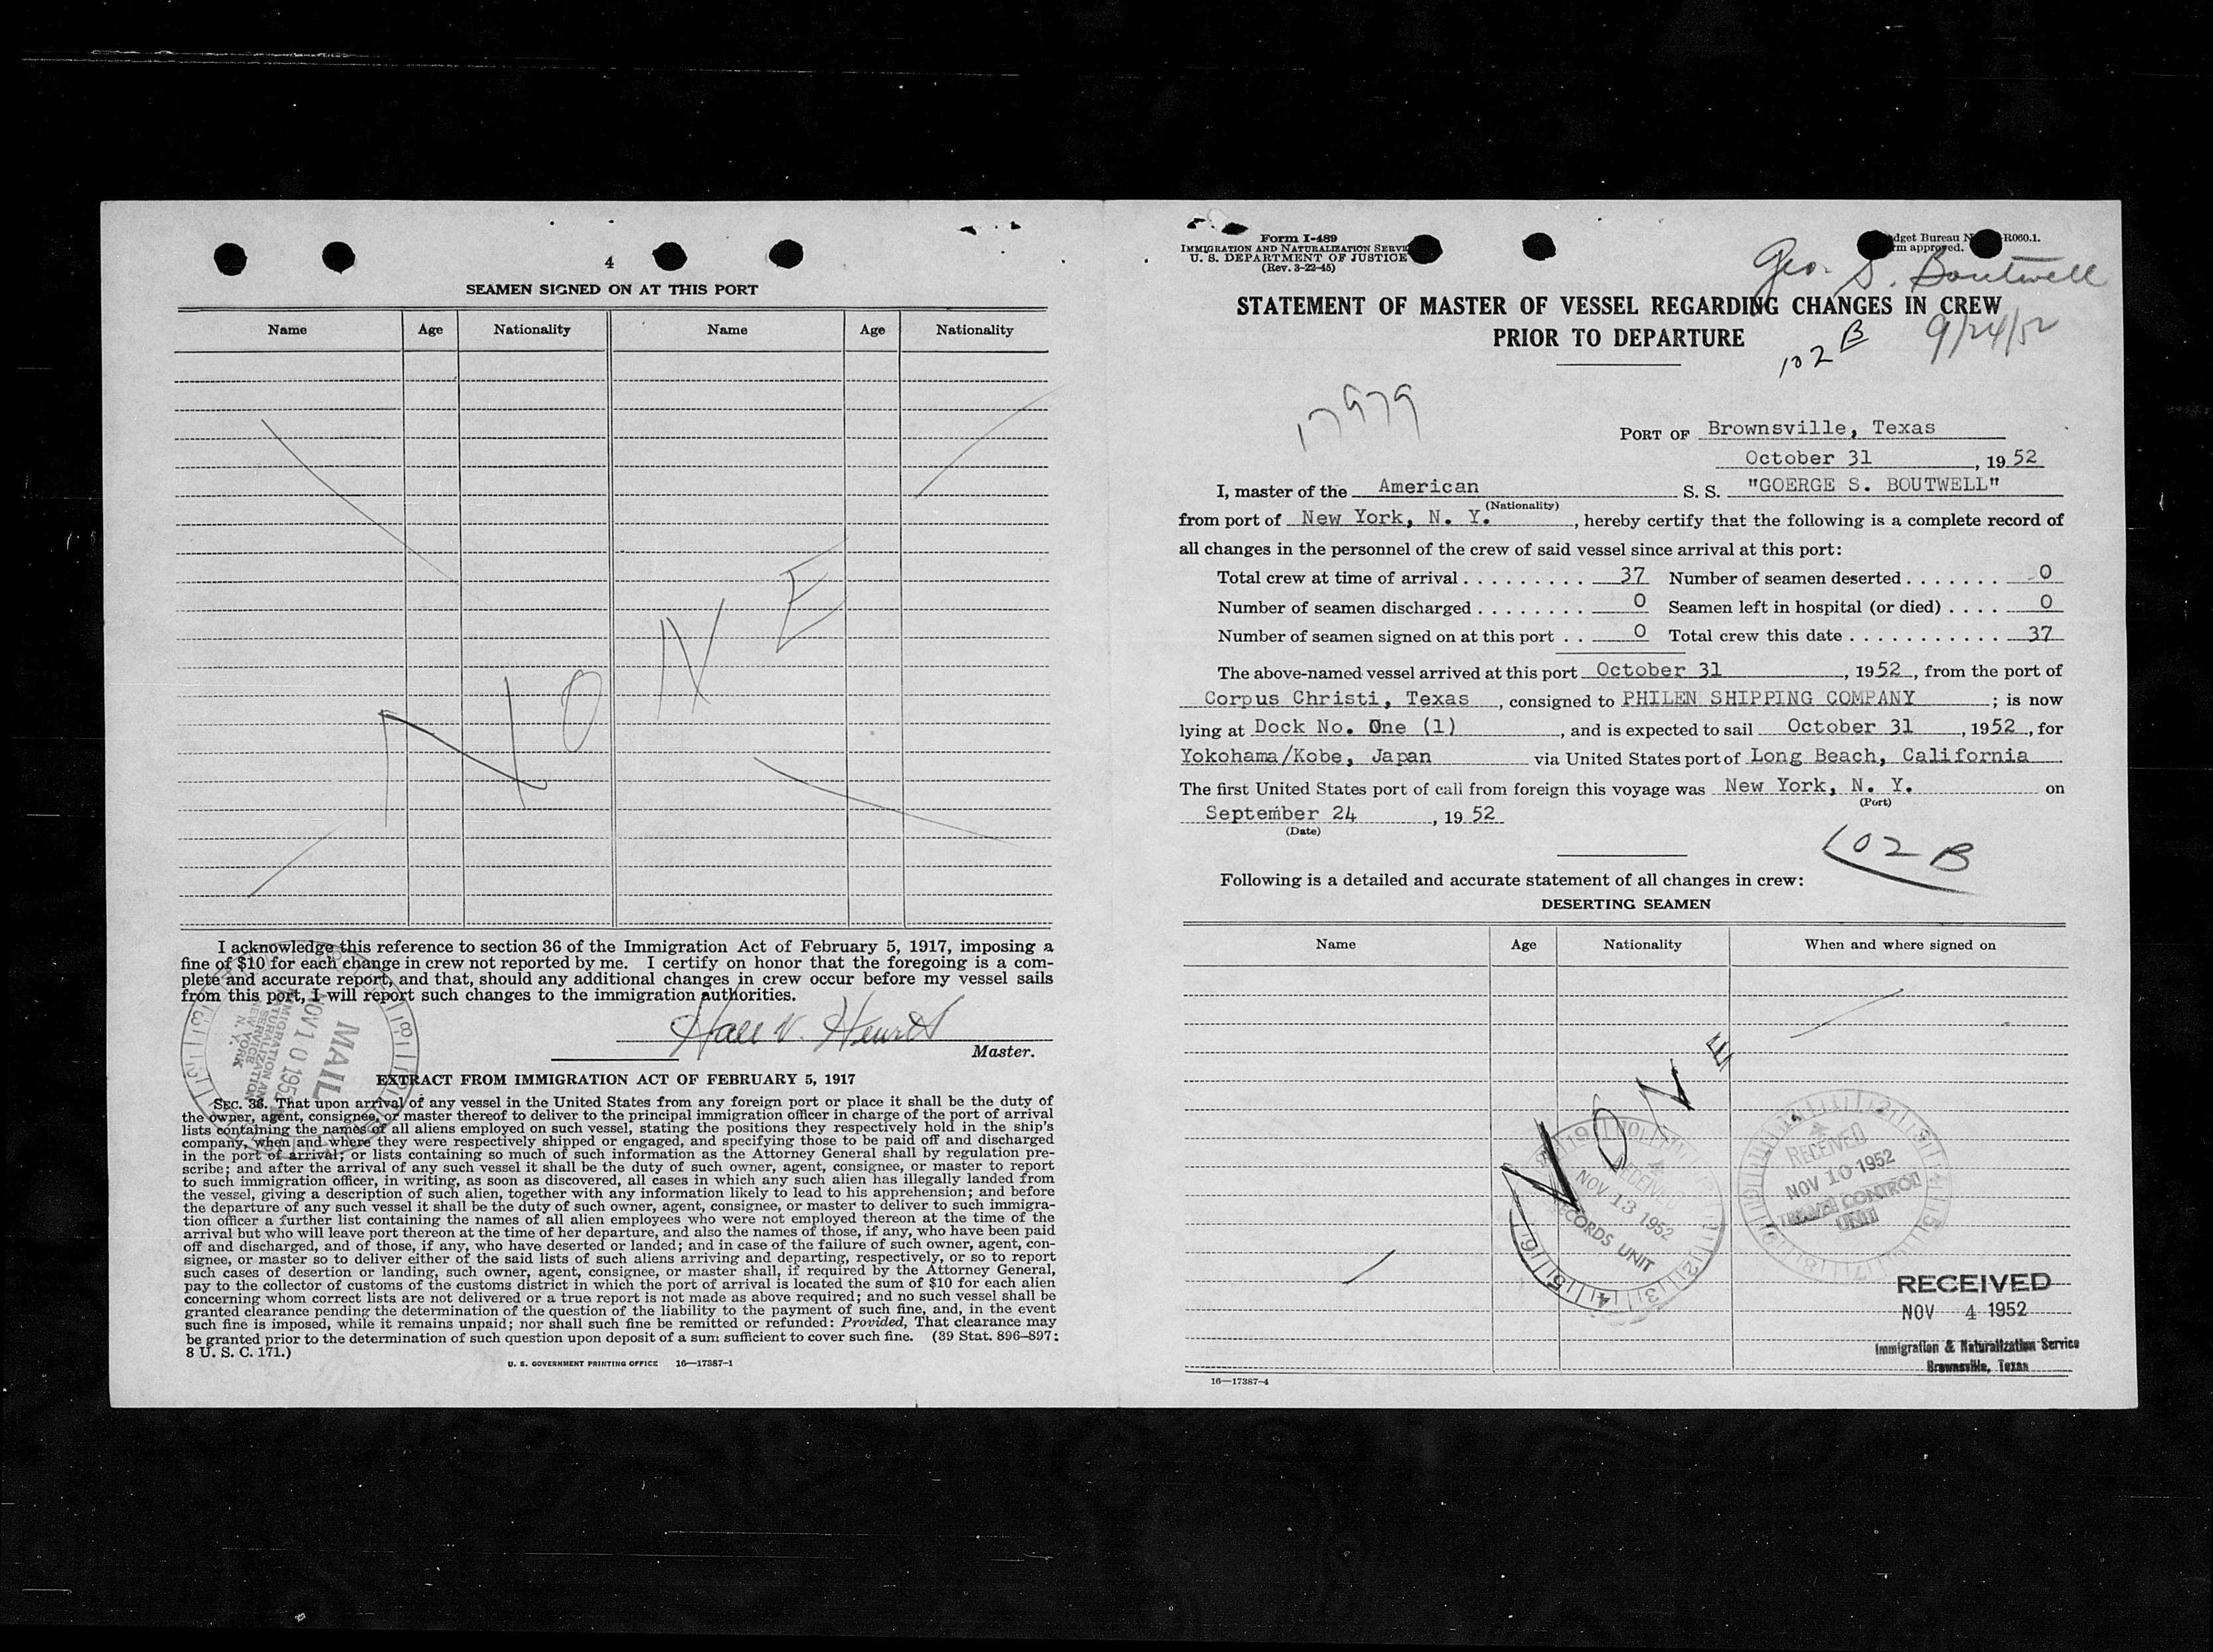 4
SEAMEN SIGNED ON AT THIS PORT
Name Age Nationality Name Age Nationality
N O N E
I acknowledge this reference to section 36 of the Immigration Act of February 5, 1917, imposing a
fine of $10 for each change in crew not reported by me. I certify on honor that the foregoing is a com-
plete and accurate report, and that, should any additional changes in crew occur before my vessel sails
from this port, I will report such changes to the immigration authorities.
Master.
MAIL
NOV 10 195
IMMIGRATION AN
NATURALIZATION
SERVICE
NEW YORK
N. Y.
EXTRACT FROM IMMIGRATION ACT OF FEBRUARY 5, 1917
SEC. 36. That upon arrival of any vessel in the United States from any foreign port or place it shall be the duty of
the owner, agent, consignee, or master thereof to deliver to the principal immigration officer in charge of the port of arrival
lists containing the names of all aliens employed on such vessel, stating the positions they respectively hold in the ship's
company, when and where they were respectively shipped or engaged, and specifying those to be paid off and discharged
in the port of arrival; or lists containing so much of such information as the Attorney General shall by regulation pre-
scribe; and after the arrival of any such vessel it shall be the duty of such owner, agent, consignee, or master to report
to such immigration officer, in writing, as soon as discovered, all cases in which any such alien has illegally landed from
the vessel, giving a description of such alien, together with any information likely to lead to his apprehension; and before
the departure of any such vessel it shall be the duty of such owner, agent, consignee, or master to deliver to such immigra-
tion officer a further list containing the names of all alien employees who were not employed thereon at the time of the
arrival but who will leave port thereon at the time of her departure, and also the names of those, if any, who have been paid
off and discharged, and of those, if any, who have deserted or landed; and in case of the failure of such owner, agent, con-
signee, or master so to deliver either of the said lists of such aliens arriving and departing, respectively, or so to report
such cases of desertion or landing, such owner, agent, consignee, or master shall, if required by the Attorney General,
pay to the collector of customs of the customs district in which the port of arrival is located the sum of $10 for each alien
concerning whom correct lists are not delivered or a true report is not made as above required; and no such vessel shall be
granted clearance pending the determination of the question of the liability to the payment of such fine, and, in the event
such fine is imposed, while it remains unpaid; nor shall such fine be remitted or refunded: Provided, That clearance may
be granted prior to the determination of such question upon deposit of a sum sufficient to cover such fine. (39 Stat. 896-897;
8 U. S. C. 171.)
U. S. GOVERNMENT PRINTING OFFICE 16—17387-1
Form I-489
IMMIGRATION AND NATURALIZATION SERVI
U. S. DEPARTMENT OF JUSTICE
(Rev. 3-22-45)
dget Bureau N R060.1.
rm approved.
Geo. S. Boutwell
STATEMENT OF MASTER OF VESSEL REGARDING CHANGES IN CREW
PRIOR TO DEPARTURE
102 B
9/24/52
17979
PORT OF Brownsville, Texas
October 31, 1952
I, master of the American S. S. "GOERGE S. BOUTWELL"
(Nationality)
from port of New York, N. Y., hereby certify that the following is a complete record of
all changes in the personnel of the crew of said vessel since arrival at this port:
Total crew at time of arrival . . . . . . . . . 37 Number of seamen deserted . . . . . . . 0
Number of seamen discharged . . . . . . . . 0 Seamen left in hospital (or died) . . . . 0
Number of seamen signed on at this port . . 0 Total crew this date . . . . . . . . . . . 37
The above-named vessel arrived at this port October 31, 1952, from the port of
Corpus Christi, Texas, consigned to PHILEN SHIPPING COMPANY; is now
lying at Dock No. One (1), and is expected to sail October 31, 1952, for
Yokohama/Kobe, Japan via United States port of Long Beach, California.
The first United States port of call from foreign this voyage was New York, N. Y. on
(Port)
September 24, 1952
(Date)
102 B
Following is a detailed and accurate statement of all changes in crew:
DESERTING SEAMEN
Name Age Nationality When and where signed on
N O N E
RECEIVED
NOV 13 1952
RECORDS UNIT
RECEIVED
NOV 10 1952
TRAVEL CONTROL
UNIT
RECEIVED
NOV 4 1952
Immigration & Naturalization Service
Brownsville, Texas
16—17387-4